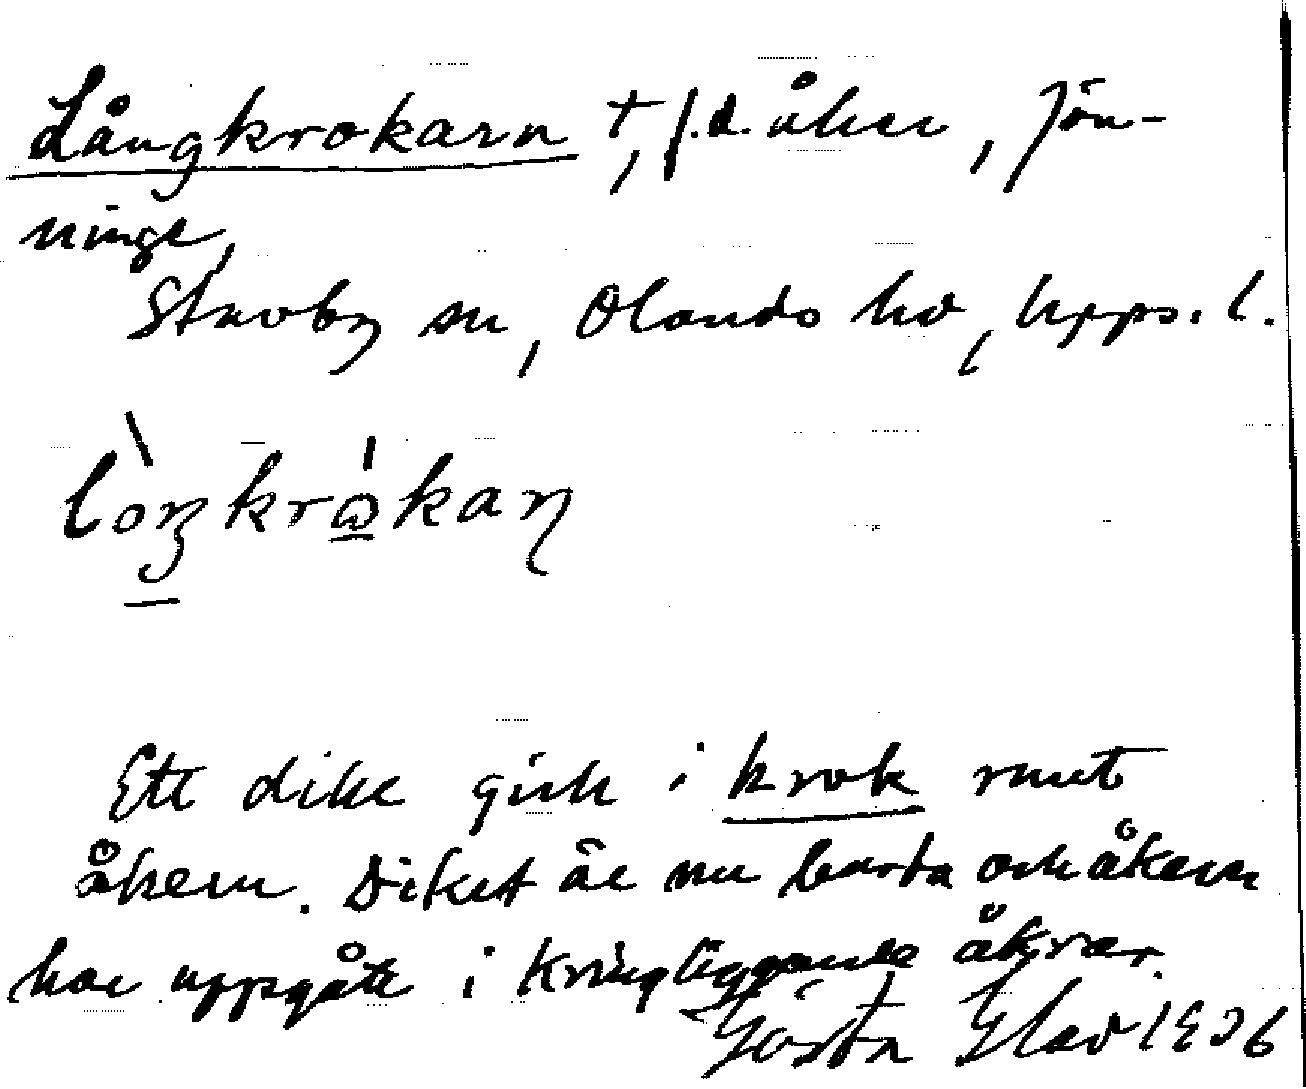 Långkrokarn †, f.d. åker, Jön-
ninge,
Stavby sn, Olands hd, Upps. l.
lòŋkrɷ́kaɳ
Ett dike gick i krok runt
åkern. Diket är nu borta och åkern
har uppgått i kringliggande åkrar.
Gösta Glad 1936